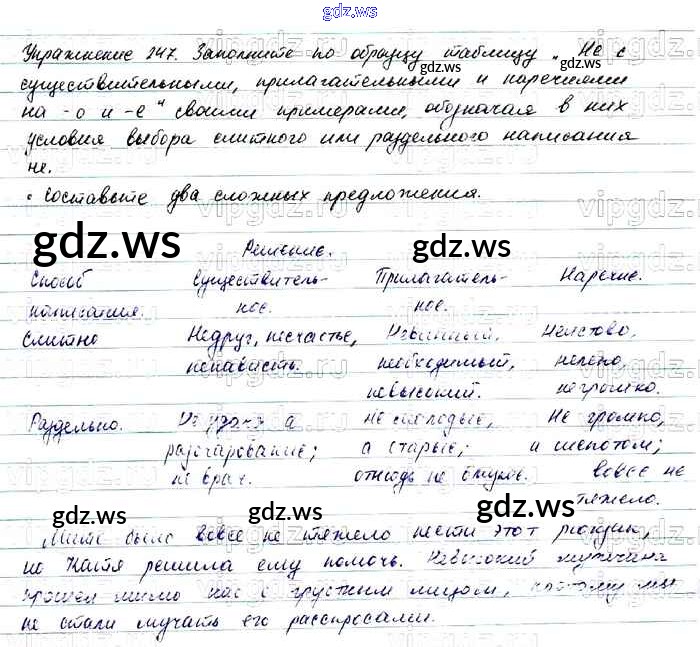 gdz.ws
Упражнение 247. Заполните по образцу таблицу "Не с
существительными, прилагательными и наречиями
на -о и -е" своими примерами, обозначая в них
условия выбора слитного или раздельного написания
не.
• Составьте два сложных предложения.
Решение.
Способ написания. Существительное. Прилагательное. Наречие.
Слитно Недруг, несчастье, ненависть. Невинный, необходимый, невысокий. Неистово, нелепо, негромко.
Раздельно. Не удача а разочарование; не враг. Не молодые, а старые; отнюдь не Не громко, и шепотом; вовсе не тяжело.
Мите было вовсе не тяжело нести этот рюкзак,
но Настя решила ему помочь. Невысокий мужчина
прошел мимо нас с грустным лицом, поэтому мы
не стали мучать его расспросами.